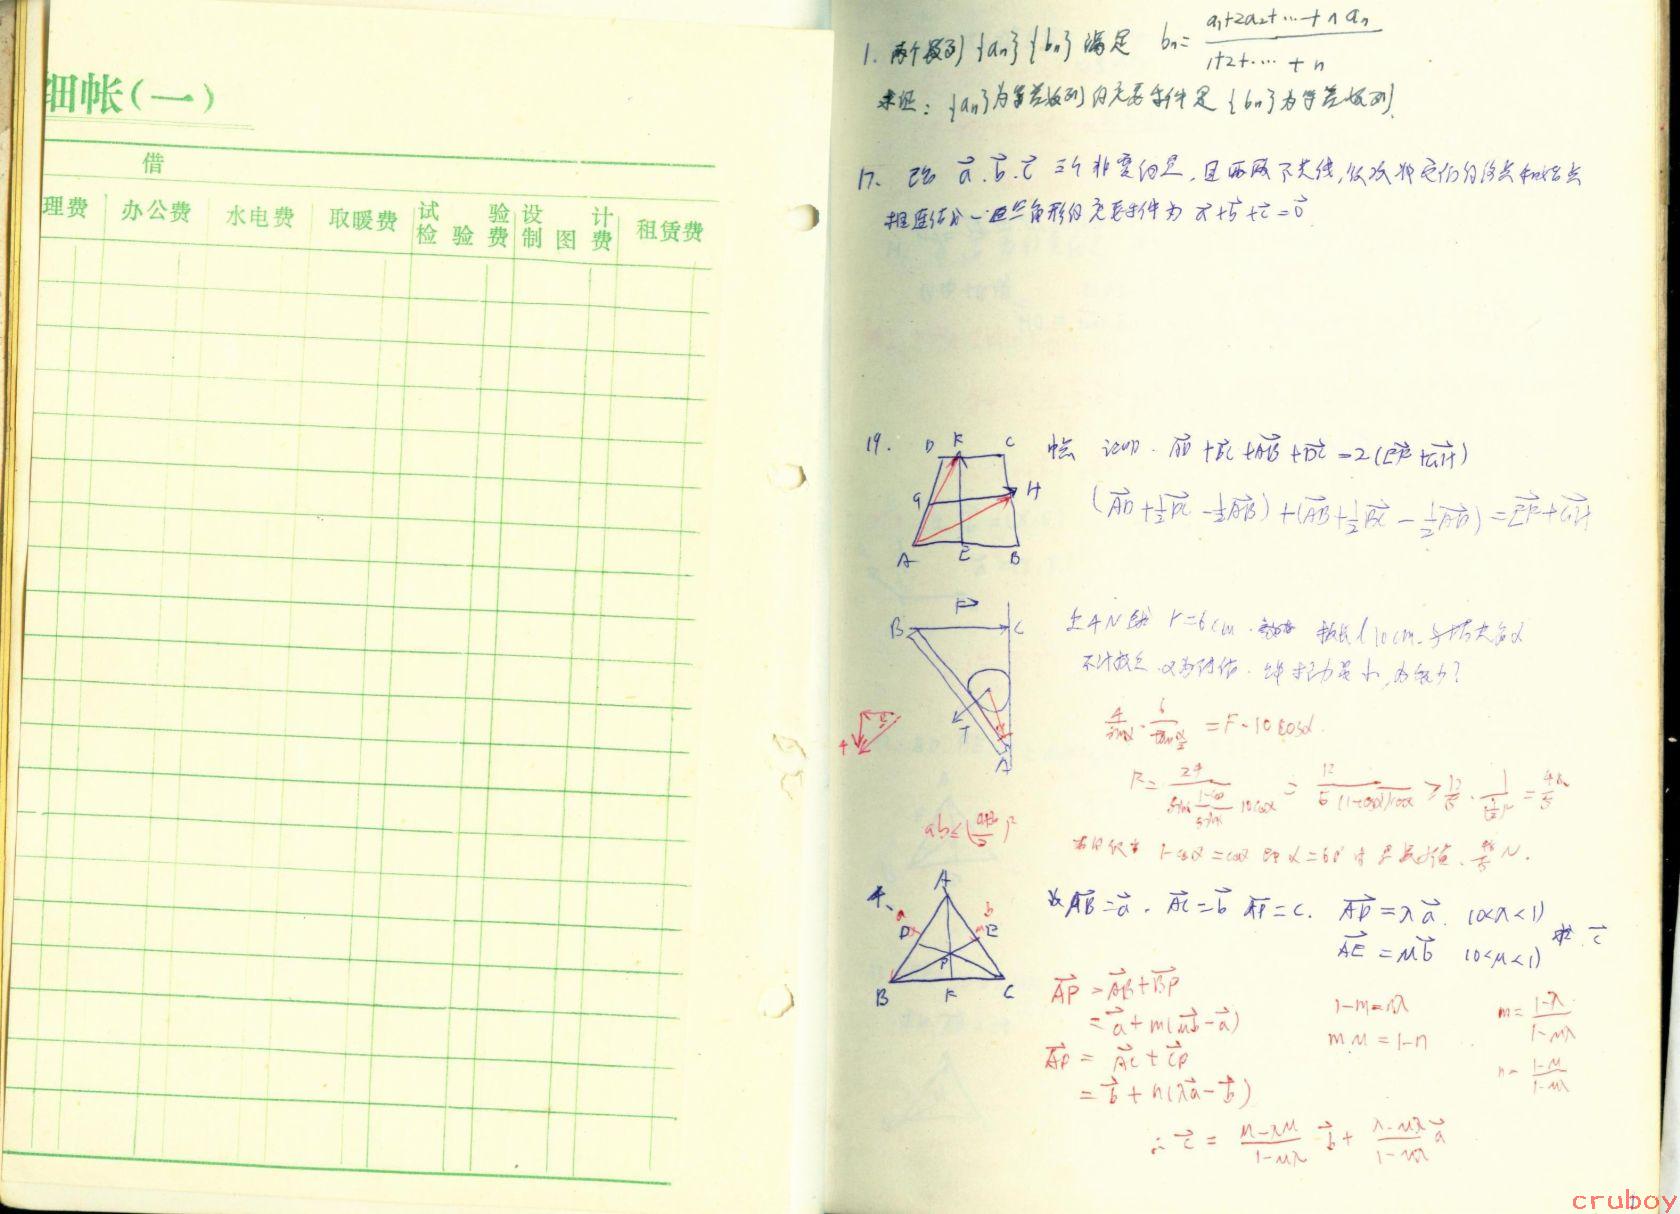 细帐(一)
借
理费 办公费 水电费 取暖费 试验检验费 设计制图费 租赁费
1. 两个数列{aₙ}{bₙ}满足 bₙ= (a₁+2a₂+⋯+naₙ)/(1+2+⋯+n)
求证：{aₙ}为等差数列的充要条件是{bₙ}为等差数列.
17. 已知 a⃗.b⃗.c⃗ 三个非零向量,且两两不共线,依次将它们的终点和始点
相连结成一三角形的充要条件为 a⃗+b⃗+c⃗=0⃗
19.
D F C
G H
A E B
证明. AD⃗+BC⃗+AB⃗+DC⃗=2(EF⃗+GH⃗)
(AD⃗+½DC⃗-½AB⃗)+(AB⃗+½BC⃗-½AD⃗)=EF⃗+GH⃗
F⃗
B C
T
A
4
r=6cm. l 10cm.
4/sinα · 6/tan(α/2) = F·10cosα.
F= 24/(sinα·(1-cosα)/sinα·10cosα) = 12/(5(1-cosα)cosα) ≥ 12/5 · 1/(½)² = 48/5
ab≤((a+b)/2)²
当且仅当 1-cosα=cosα 即 α=60° 时 48/5 N.
4.
A
D E
P
B F C
a b
AB⃗=a⃗. AC⃗=b⃗ AP⃗=c. AD⃗=λa⃗. (0<λ<1)
AE⃗=μb⃗ (0<μ<1) 求 c⃗
AP⃗=AB⃗+BP⃗
=a⃗+m(μb⃗-a⃗)
AP⃗= AC⃗+CP⃗
=b⃗+n(λa⃗-b⃗)
1-m=nλ
mμ=1-n
m= (1-λ)/(1-μλ)
n= (1-μ)/(1-μλ)
∴ c⃗ = (μ-λμ)/(1-μλ) b⃗ + (λ-μλ)/(1-μλ) a⃗
cruboy